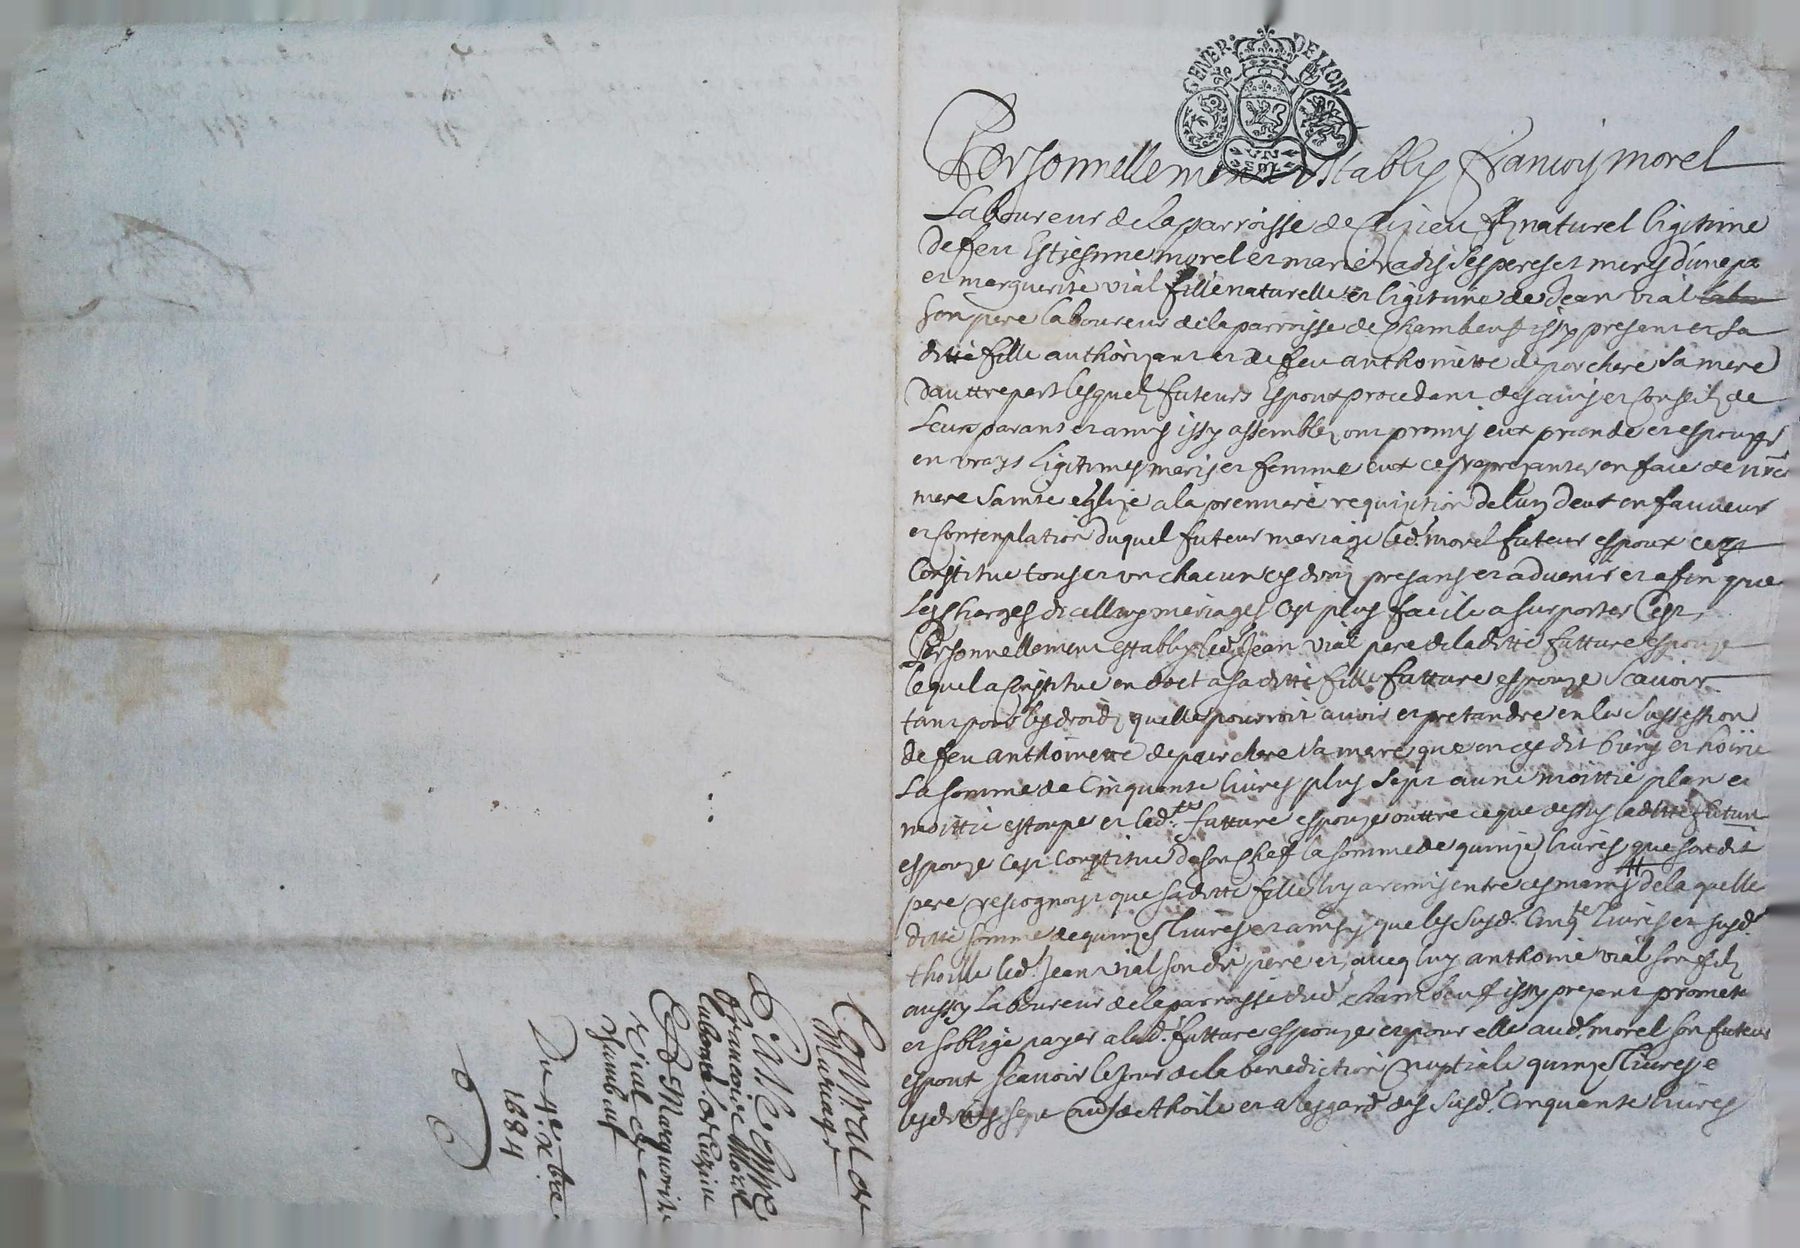 GENER. DE LION
UN
SOL
Personnellement estably francois morel
Laboureur de la parroisse de Cuzieu filz naturel ligitime
de feu Estiesnne morel et marie radis ses pere et mere d'une part
et marguerite vial fille naturelle et ligitime de Jean vial
son pere laboureur de la parroisse de Chambeuf issy present et sa
ditte fille authorizant et de feu anthoinette de porchere sa mere
dauttre part lesquelz futeurs Espoux procedant de s avis et conseilz de
Leurs parans et amis issy assemblez ont promis eux prandre et espouser
en vrays ligitimes maris et femme eux ce representer en face de nre
mere Sainte eglize a la premiere requizition de lun deux en faveur
et contemplation duquel futeur mariage led. morel futeur espoux cest
Constitue tous et un chacun ces droitz presans et advenir et afin que
Les charges dicelluy mariages soyt plus facile a surporter cest
Personnellement estably led. Jean vial pere de la ditte futture espouze
lequel a constitue en dot a sa ditte fille futture espouze scavoir
tant pour les droidz quelle pourroit avoir et pretandre en la sussession
de feu anthoinette de porchere sa mere que en ces dit biens et hoirie
La somme de Cinquante livres plus sept aune moittie plan et
moittie estoupe et lad.te futture espouze outtre ce que dessus laditte futture
espouze cest constitue de son chef la somme de quinze livres que son dit
pere rescognoyt que sa ditte fille luy a remis entre ces mains de la quelle
ditte somme de quinze livres et ainsy que les susd. cinq.te livres et susd.
thoille led. Jean vial son dit pere et avecq luy anthoine vial son filz
aussy Laboureur de la parroisse dud. chambeuf issy present promete
et soblige payer a lad. futture espouze et pour elle aud. morel son futeur
espoux scavoir le jour de la benediction nuptiale quinze livres e
lesdittes sept aunes de thoile et a lesgard des susd. Cinquante livres
Contrat de
Mariage
Passé Entre
francois Morel
Laboureur de Cuzieu
Et d. Marguerite
Vial de
Chambeuf
Du 4e. Xbre.
1684